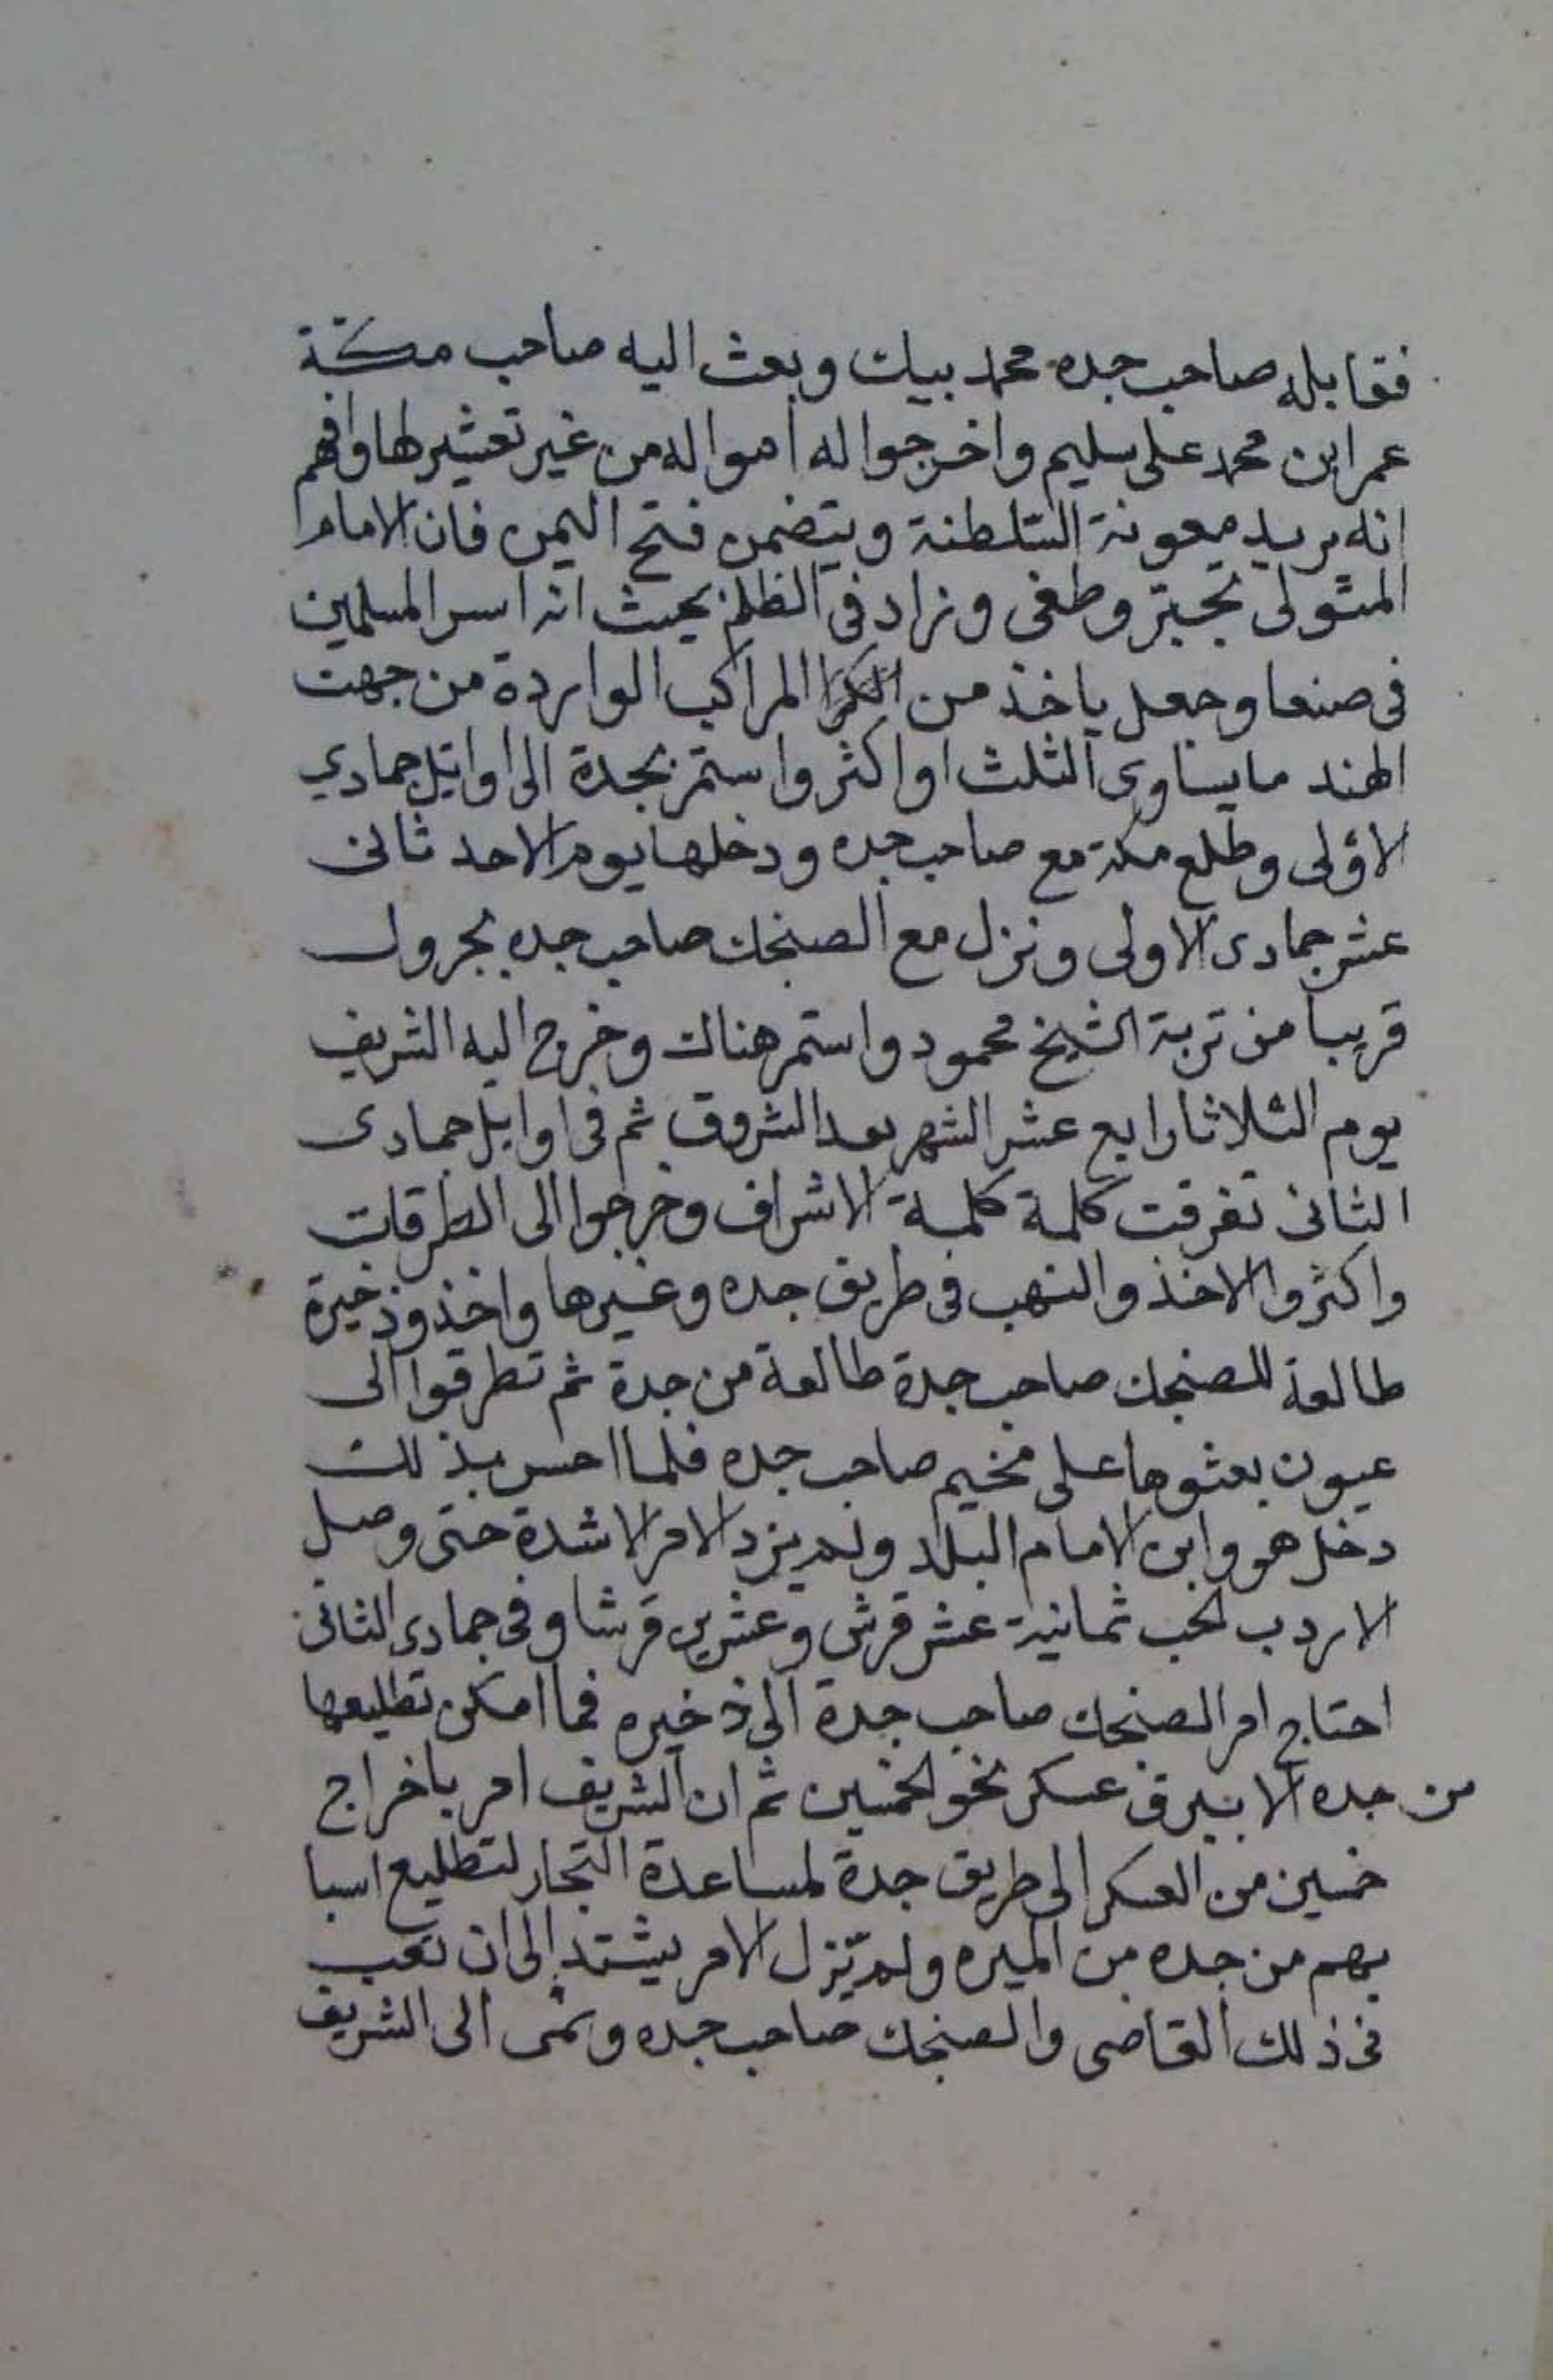 فقابله صاحب جده محمد بيك وبعث اليه صاحب مكة
عمر ابن محمد على سليم واخرجوا له امواله من غير تعشير لها وافهم
انه يريد معونة السلطنة ويتضمن فتح اليمن فان الامام
المتولى تجبر وطغى وزاد فى الظلم بحيث انه اسر المسلمين
فى صنعا وجعل ياخذ من الكرا المراكب الواردة من جهت
الهند مايساوى الثلث او اكثر واستمر بجدة الى اوايل جمادي
الاولى وطلع مكة مع صاحب جده ودخلها يوم الاحد ثانى
عشر جمادى الاولى ونزل مع الصنجك صاحب جده بجرول
قريبا من تربة الشيخ محمود واستمر هناك وخرج اليه الشريف
يوم الثلاثا رابع عشر الشهر بعد الشروق ثم فى اوايل جمادى
الثانى تفرقت كلمة كلمة الاشراف وخرجوا الى الطرقات
واكثروا الاخذ والنهب فى طريق جده وغيرها واخذو ذخيرة
طالعة للصنجك صاحب جدة طالعة من جدة ثم تطرقوا الى
عيون بعثوها على مخيم صاحب جده فلما احس بذلك
دخل هو وابن الامام البلد ولم يزد الامر الا شدة حتى وصل
الاردب الحب ثمانية عشر قرش وعشرين قرشا وفى جمادى الثانى
احتاج امر الصنجك صاحب جدة الى ذخيره فما امكن تطليعها
من جده الا ببيرق عسكر نحو الخمسين ثم ان الشريف امر باخراج
خمسين من العسكر الى طريق جدة لمساعدة التجار لتطليع اسبا
بهم من جده من الميره ولم يزل الامر يشتد الى ان تعب
فى ذلك القاضى والصنجك صاحب جده ونمى الى الشريف